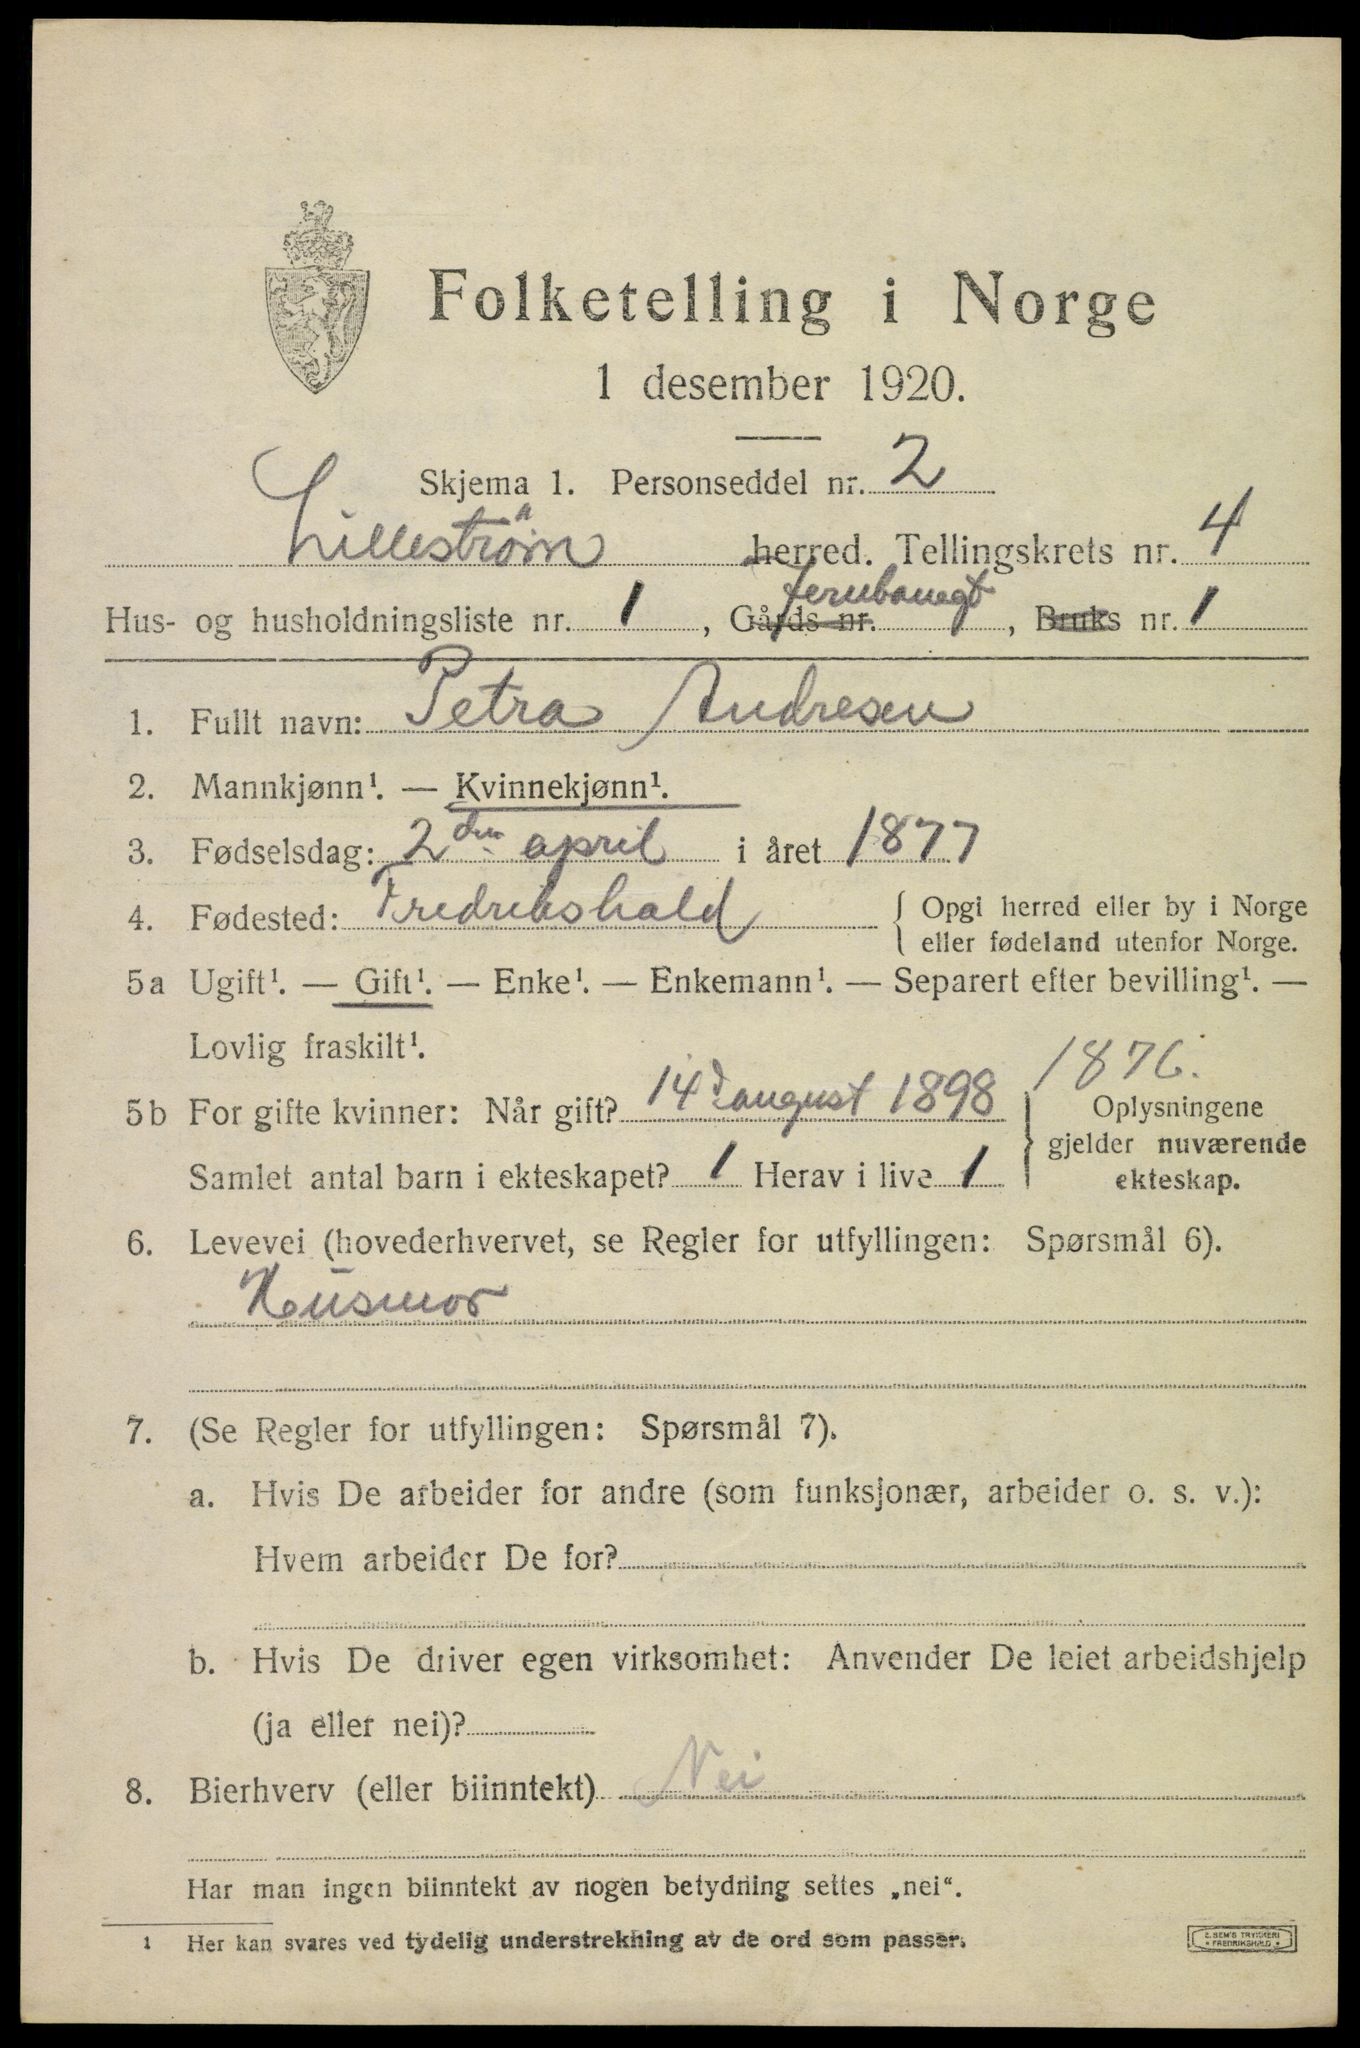 Folketelling i Norge
1 desember 1920.
Skjema 1. Personseddel nr. 2
Lilleström herred. Tellingskrets nr. 4
Jernbanegt
Hus- og husholdningsliste nr. 1, Gårds nr. , Bruks nr. 1
1. Fullt navn: Petra Andresen
2. Mannkjønn¹. — Kvinnekjønn¹.
3. Fødselsdag: 2den april i året 1877
4. Fødested: Fredrikshald { Opgi herred eller by i Norge
eller fødeland utenfor Norge.
5a Ugift¹. — Gift¹. — Enke¹. — Enkemann¹. — Separert efter bevilling¹. —
Lovlig fraskilt¹.
1876.
5b For gifte kvinner: Når gift? 14d august 1898 } Oplysningene
gjelder nuværende
Samlet antal barn i ekteskapet? 1 Herav i live 1 ekteskap.
6. Levevei (hovederhvervet, se Regler for utfyllingen: Spørsmål 6).
Husmor
7. (Se Regler for utfyllingen: Spørsmål 7).
a. Hvis De arbeider for andre (som funksjonær, arbeider o. s. v.):
Hvem arbeider De for?
b. Hvis De driver egen virksomhet: Anvender De leiet arbeidshjelp
(ja eller nei)?
8. Bierhverv (eller biinntekt) Nei
Har man ingen biinntekt av nogen betydning settes „nei“.
1 Her kan svares ved tydelig understrekning av de ord som passer.
E. SEM'S TRYKKERI
• FREDRIKSHALD •